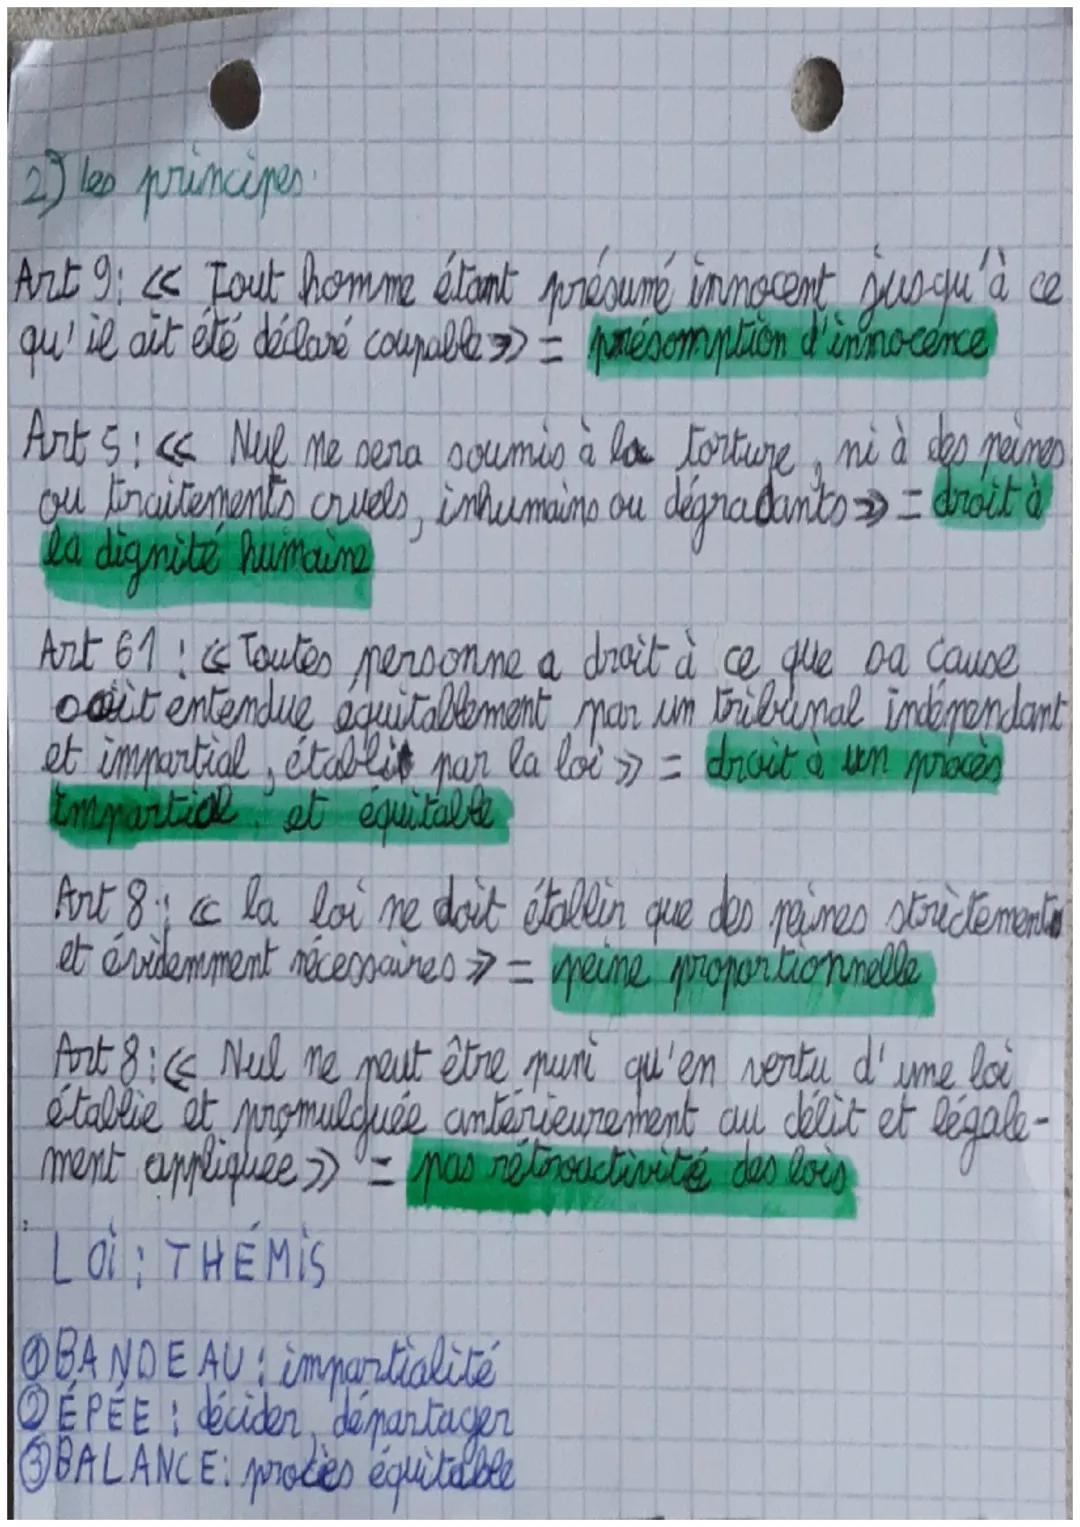 2) les principes:
Art 9: << Tout homme étant présumé innocent jusqu'à ce
qu'il ait été déclaré coupable >> = présomption d'innocence
Art 5: << Nul ne sera soumis à la torture, ni à des peines
ou traitements cruels, inhumains ou dégradants >> = droit à
la dignité humaine
Art 61 : << Toutes personne a droit à ce que sa cause
soit entendue équitablement par un tribunal indépendant
et impartial, établit par la loi >> = droit à un procès
impartial et équitable
Art 8 : << la loi ne doit établir que des peines strictement
et évidemment nécessaires >> = peine proportionnelle
Art 8 : << Nul ne peut être puni qu'en vertu d'une loi
établie et promulguée antérieurement au délit et légale-
ment appliquee >> = pas rétroactivité des lois
LOi : THÉMiS
① BANDEAU : impartialité
② ÉPÉE : décider, départager
③ BALANCE : procès équitable